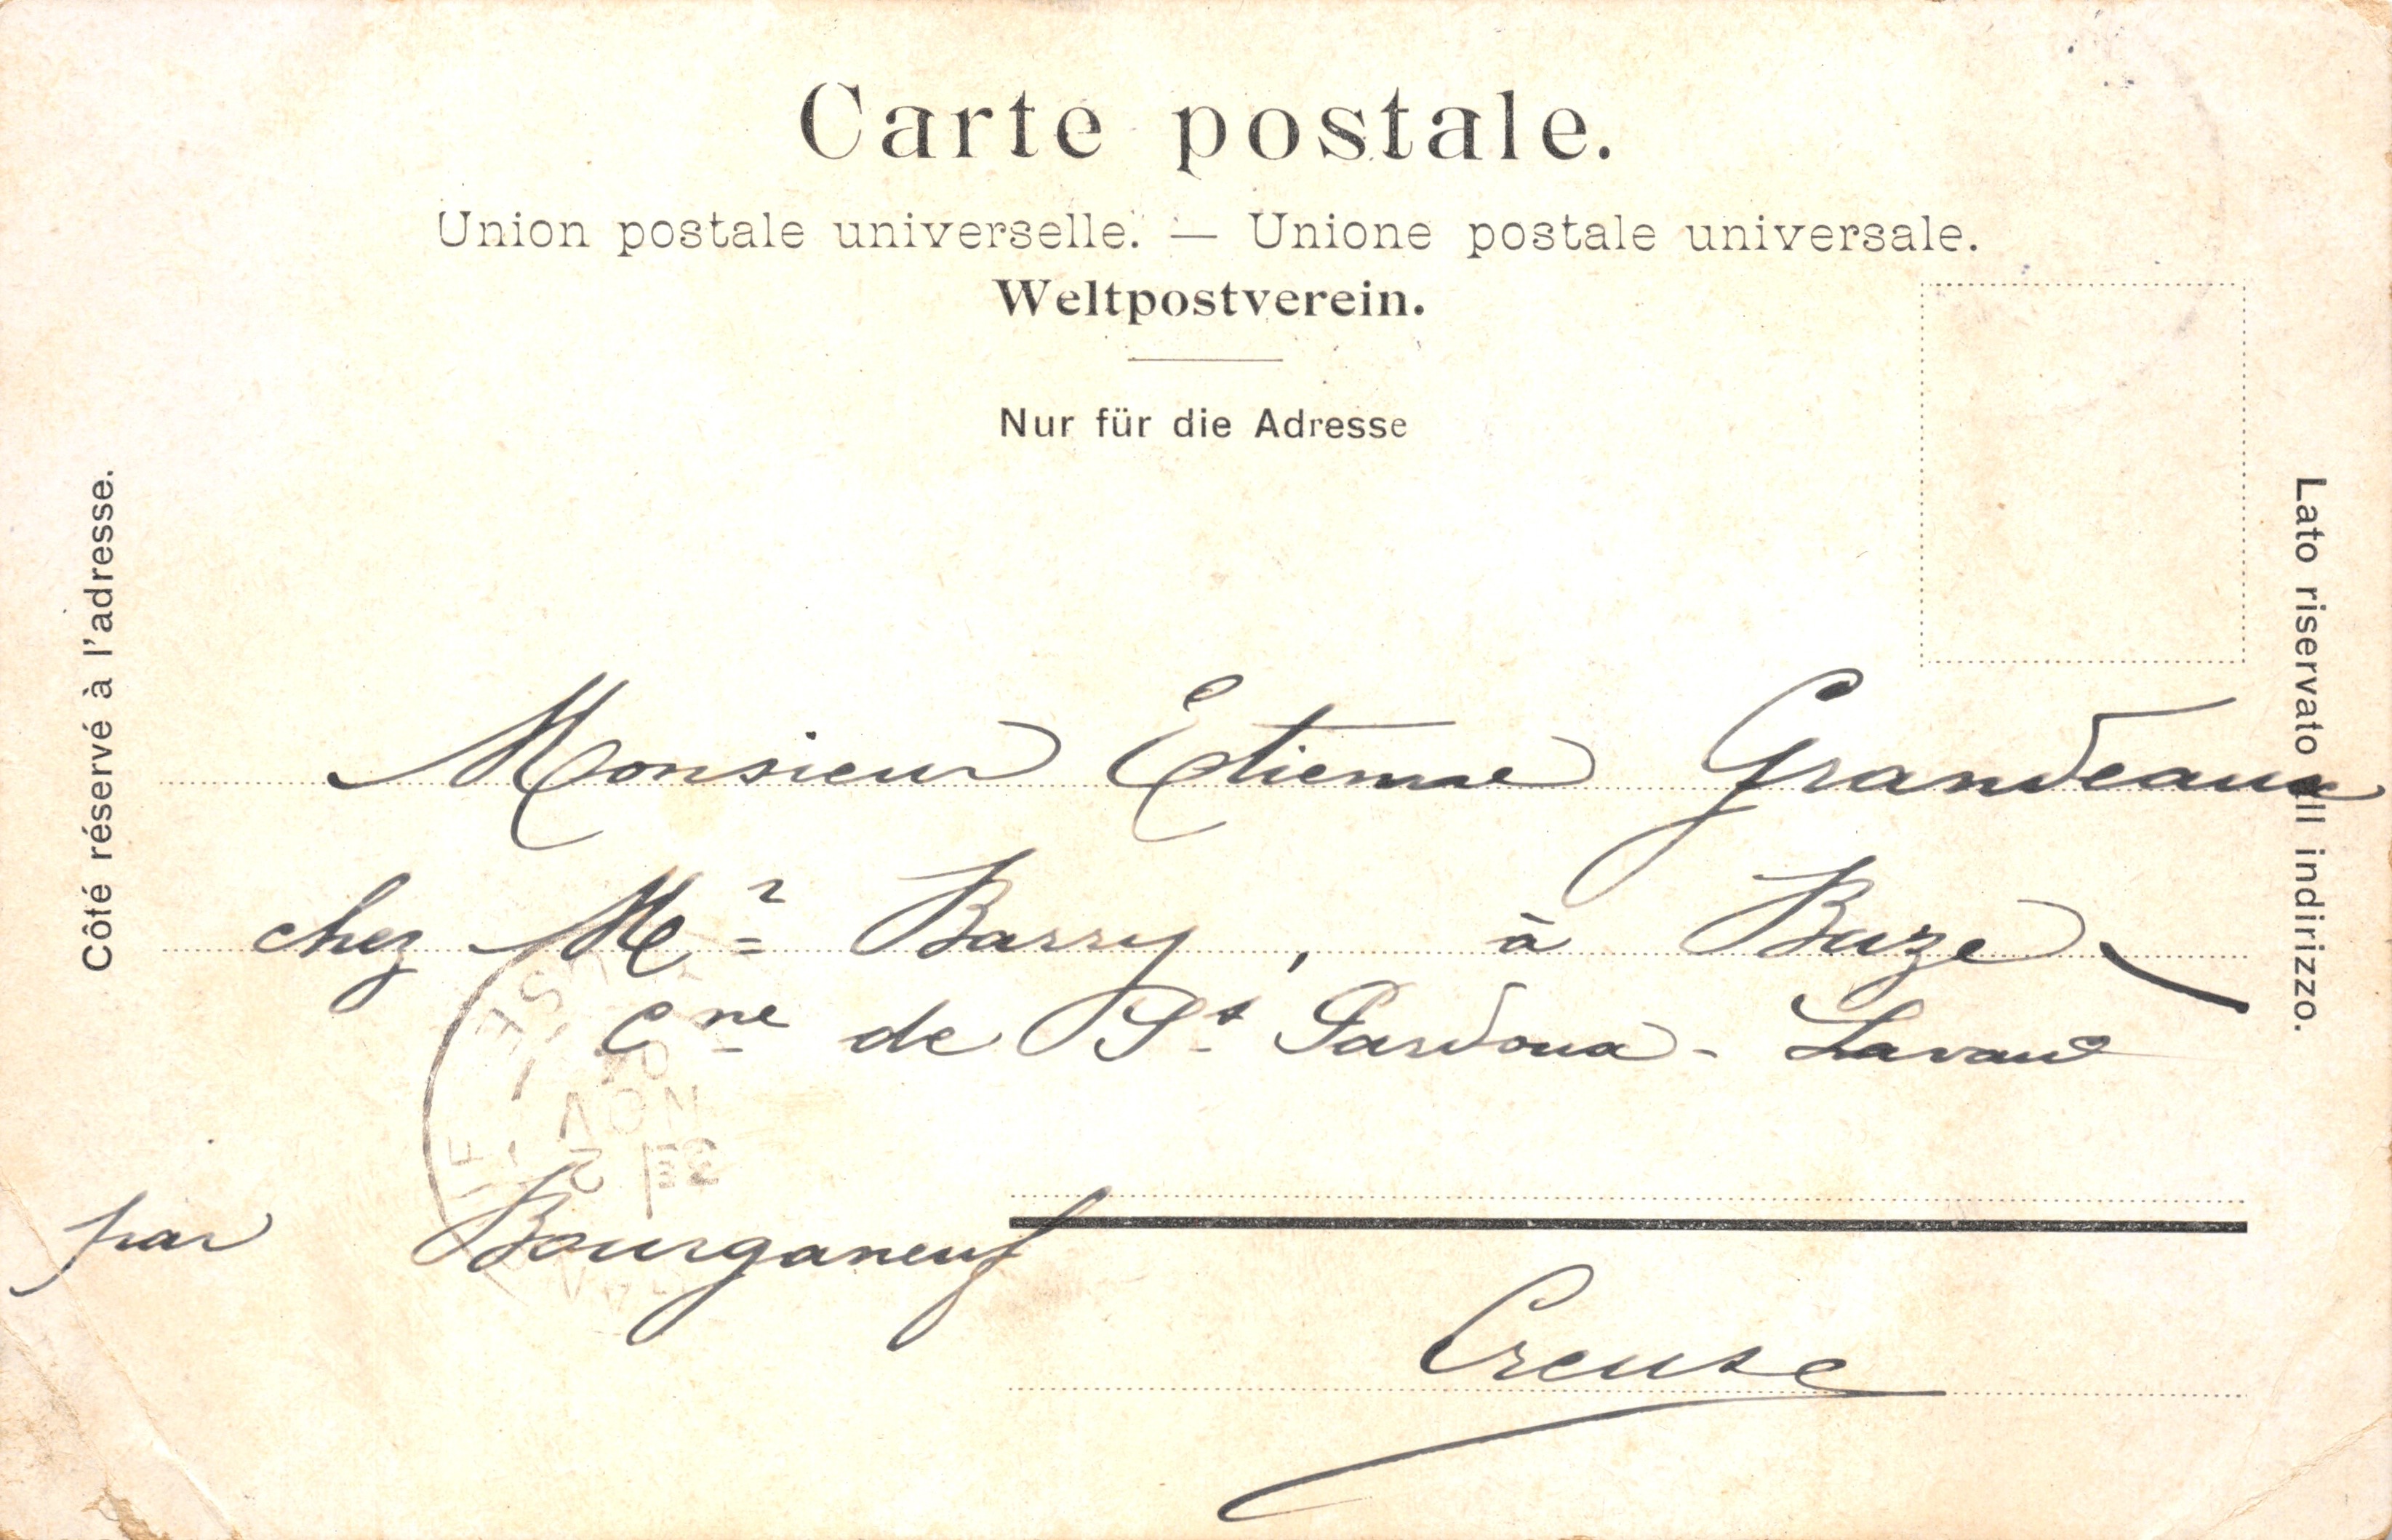 Carte postale.
Union postale universelle. — Unione postale universale.
Weltpostverein.
Nur für die Adresse
Côté réservé à l'adresse.
Lato riservato all indirizzo.
Monsieur Etienne Grandeaux
chez Mr Barry, à Buze
Cne de St Pardoux-Lavaud
par Bourganeuf
Creuse
NOV